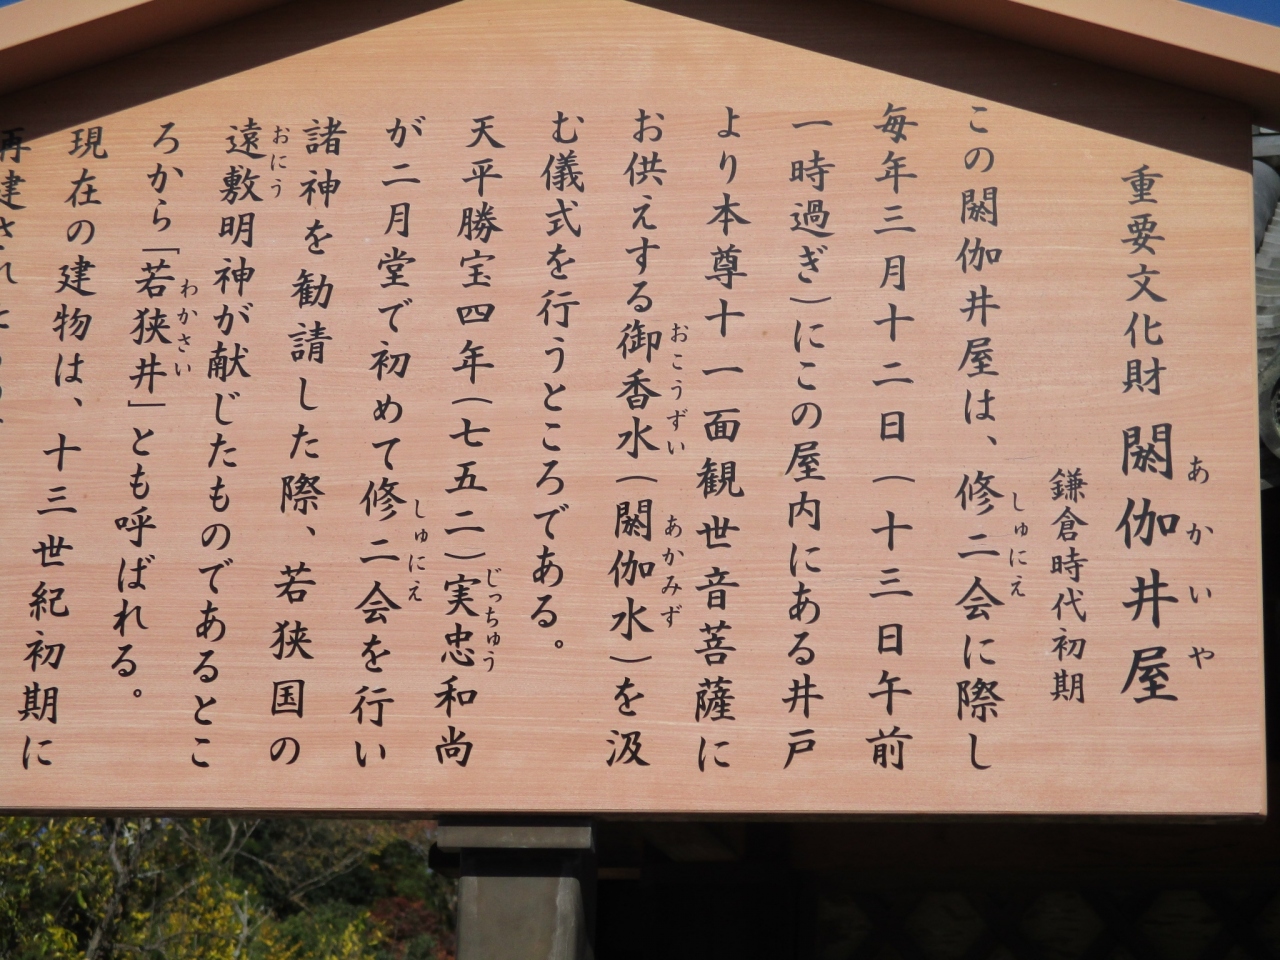 重要文化財 閼伽井屋
あかいや
鎌倉時代初期
この閼伽井屋は、修二会に際し
しゅにえ
毎年三月十二日(十三日午前
一時過ぎ)にこの屋内にある井戸
より本尊十一面観世音菩薩に
お供えする御香水(閼伽水)を汲
おこうずい
あかみず
む儀式を行うところである。
天平勝宝四年(七五二)実忠和尚
じっちゅう
が二月堂で初めて修二会を行い
しゅにえ
諸神を勧請した際、若狭国の
遠敷明神が献じたものであるとこ
おにう
ろから「若狭井」とも呼ばれる。
わかさい
現在の建物は、十三世紀初期に
再建され